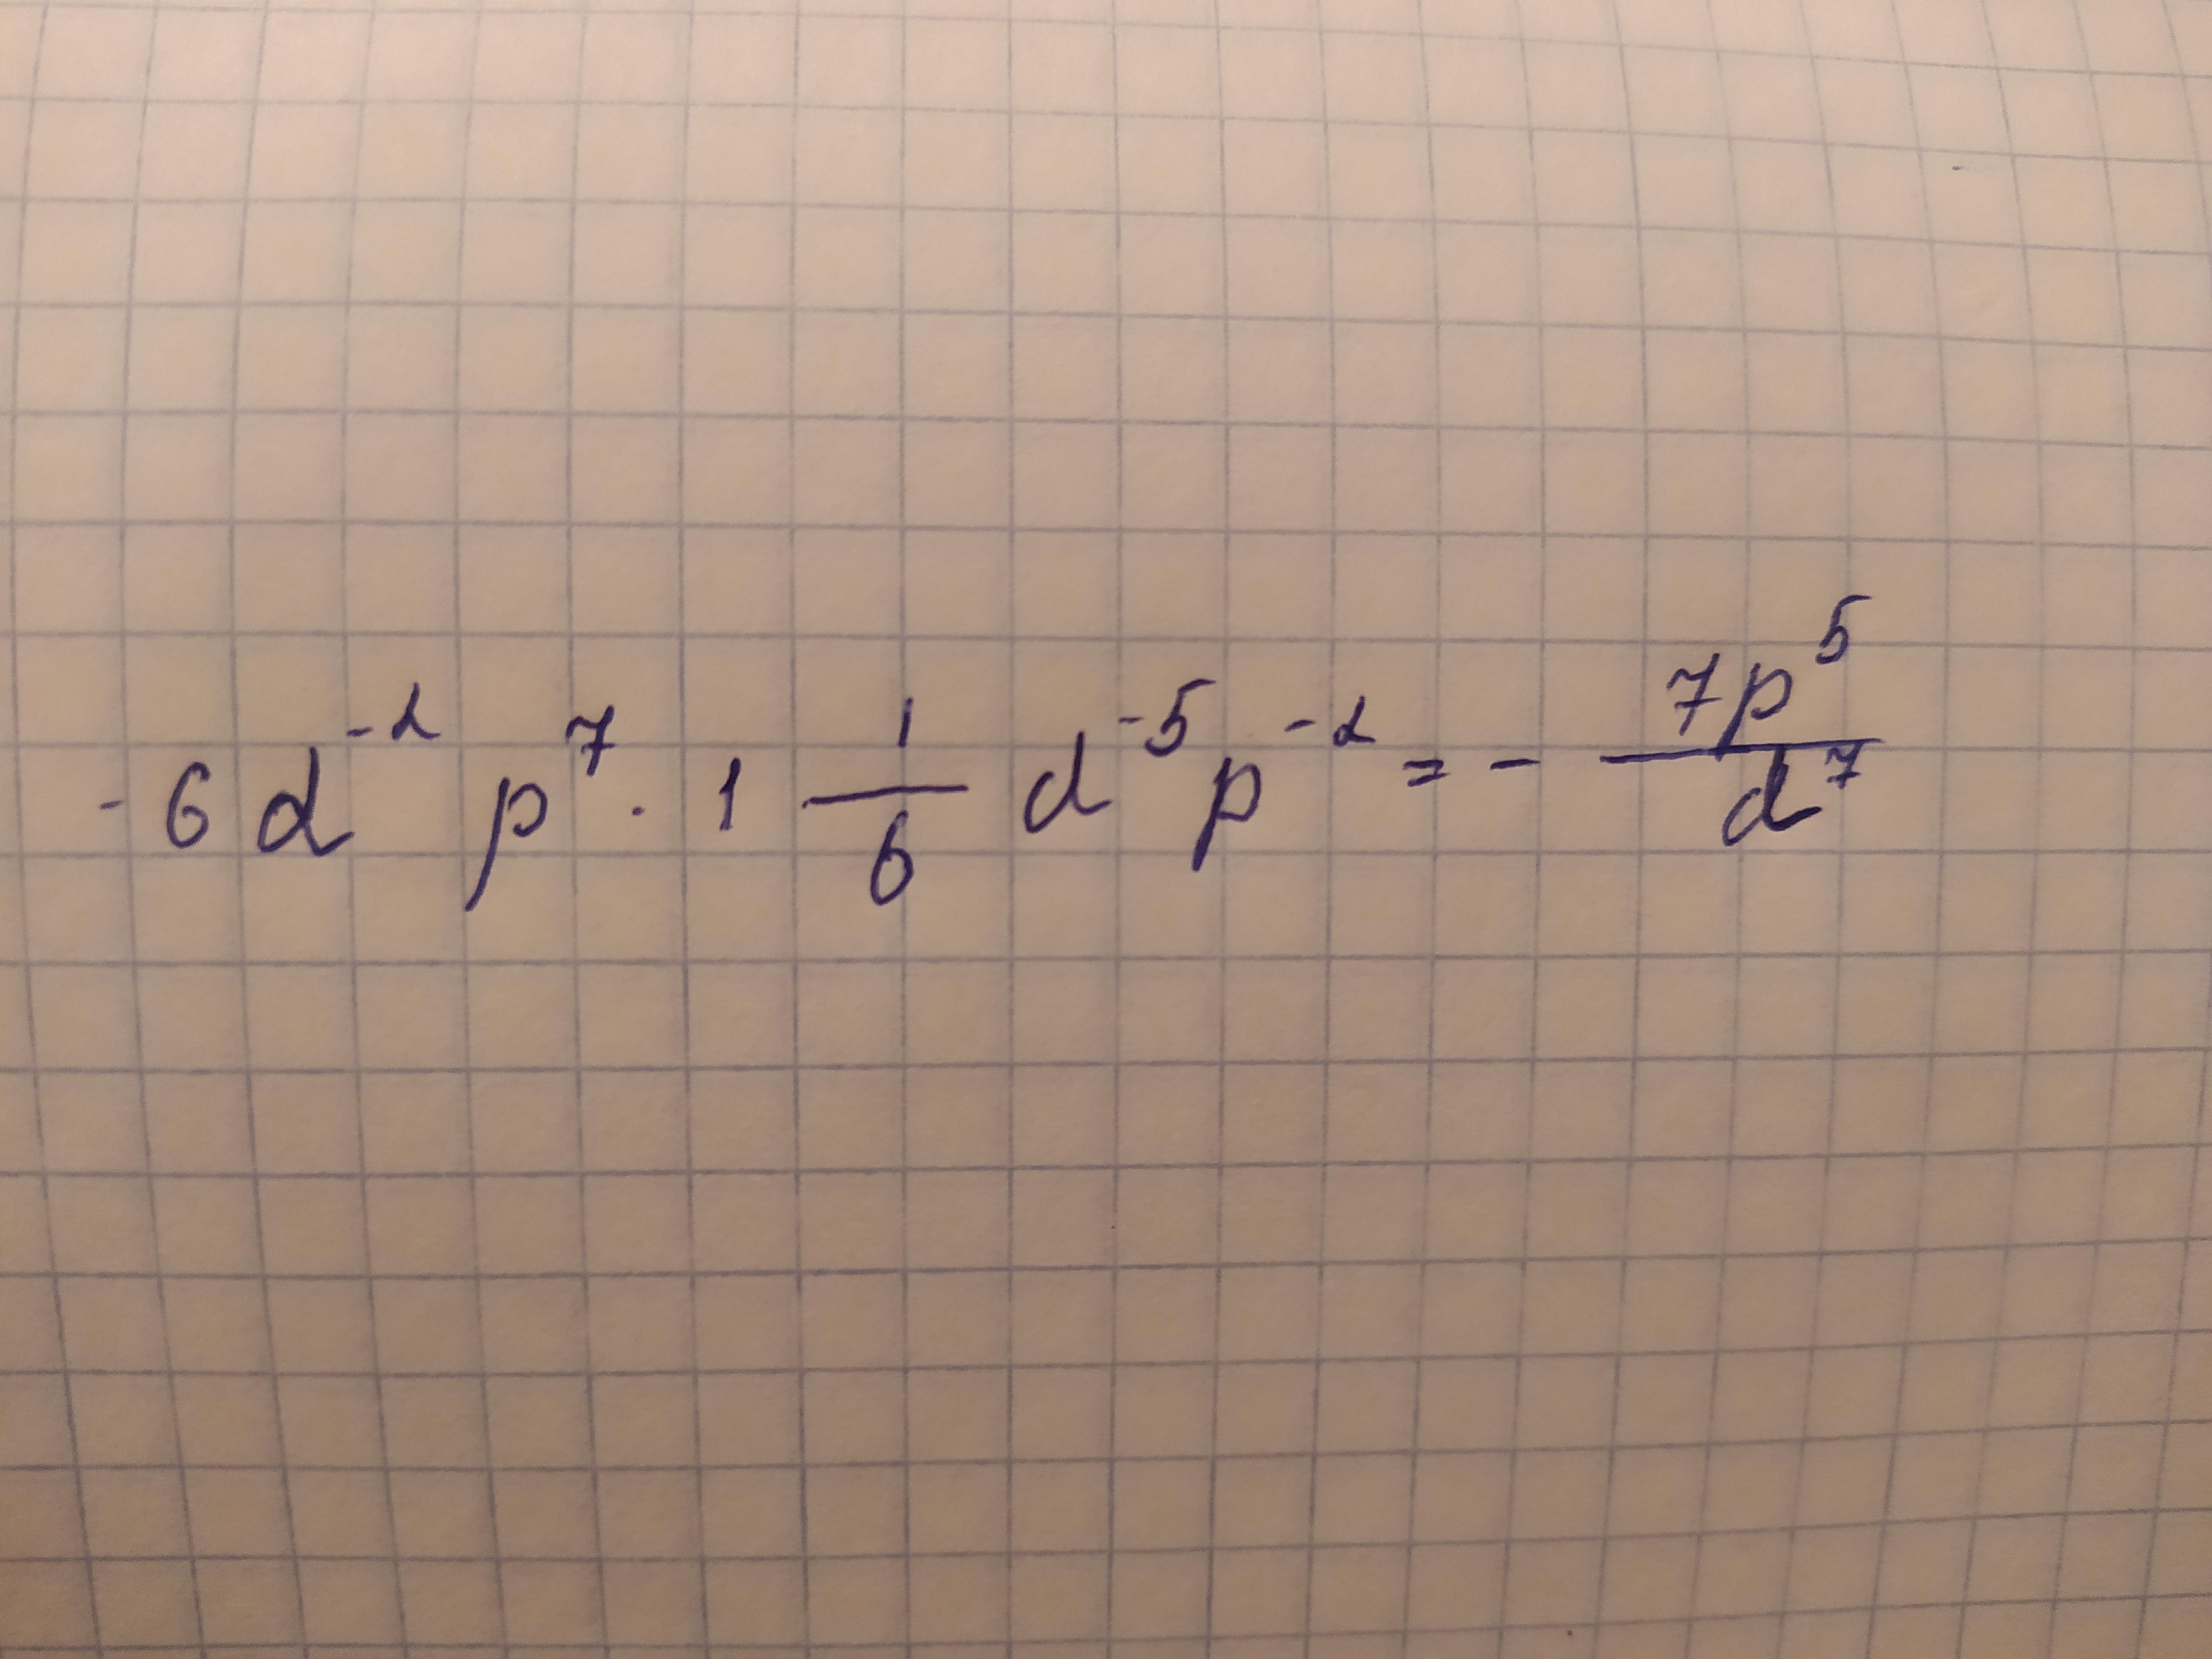 -6 d^-2 p^7 · 1 1/6 d^-5 p^-2 = - 7p^5/d^7